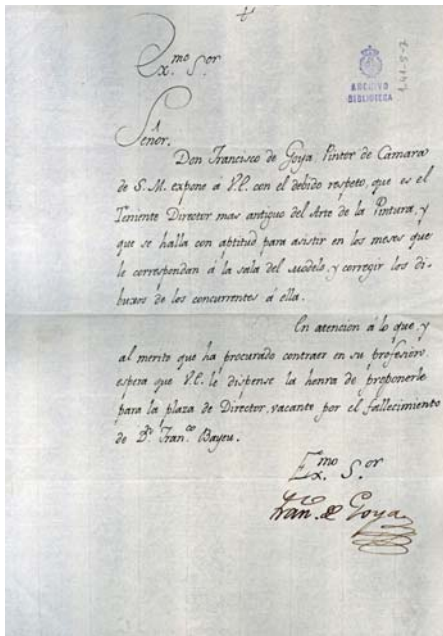 Ex.mo S.or
ARCHIVO
BIBLIOTECA
Señor.
Don Francisco de Goya Pintor de Cámara
de S.M. expone á V.E. con el debido respeto, que es el
Teniente Director mas antiguo del Arte de la Pintura, y
que se halla con aptitud para asistir en los meses que
le correspondan á la sala del modelo, y corregir los di-
buxos de los concurrentes á ella.
En atencion á lo que, y
al merito que ha procurado contraer en su profesión
espera que V.E. le dispense la honra de proponerle
para la plaza de Director, vacante por el fallecimiento
de D.n Fran.co Bayeu.
Ex.mo S.or
Fran.co de Goya